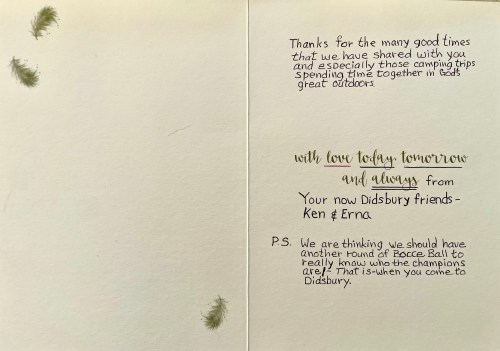 Thanks for the many good times
that we have shared with you
and especially those camping trips
spending time together in God's
great outdoors.
with love today, tomorrow
and always from
Your now Didsbury friends -
Ken & Erna
P.S. We are thinking we should have
another round of Bocce Ball to
really know who the champions
are! - That is - when you come to
Didsbury.